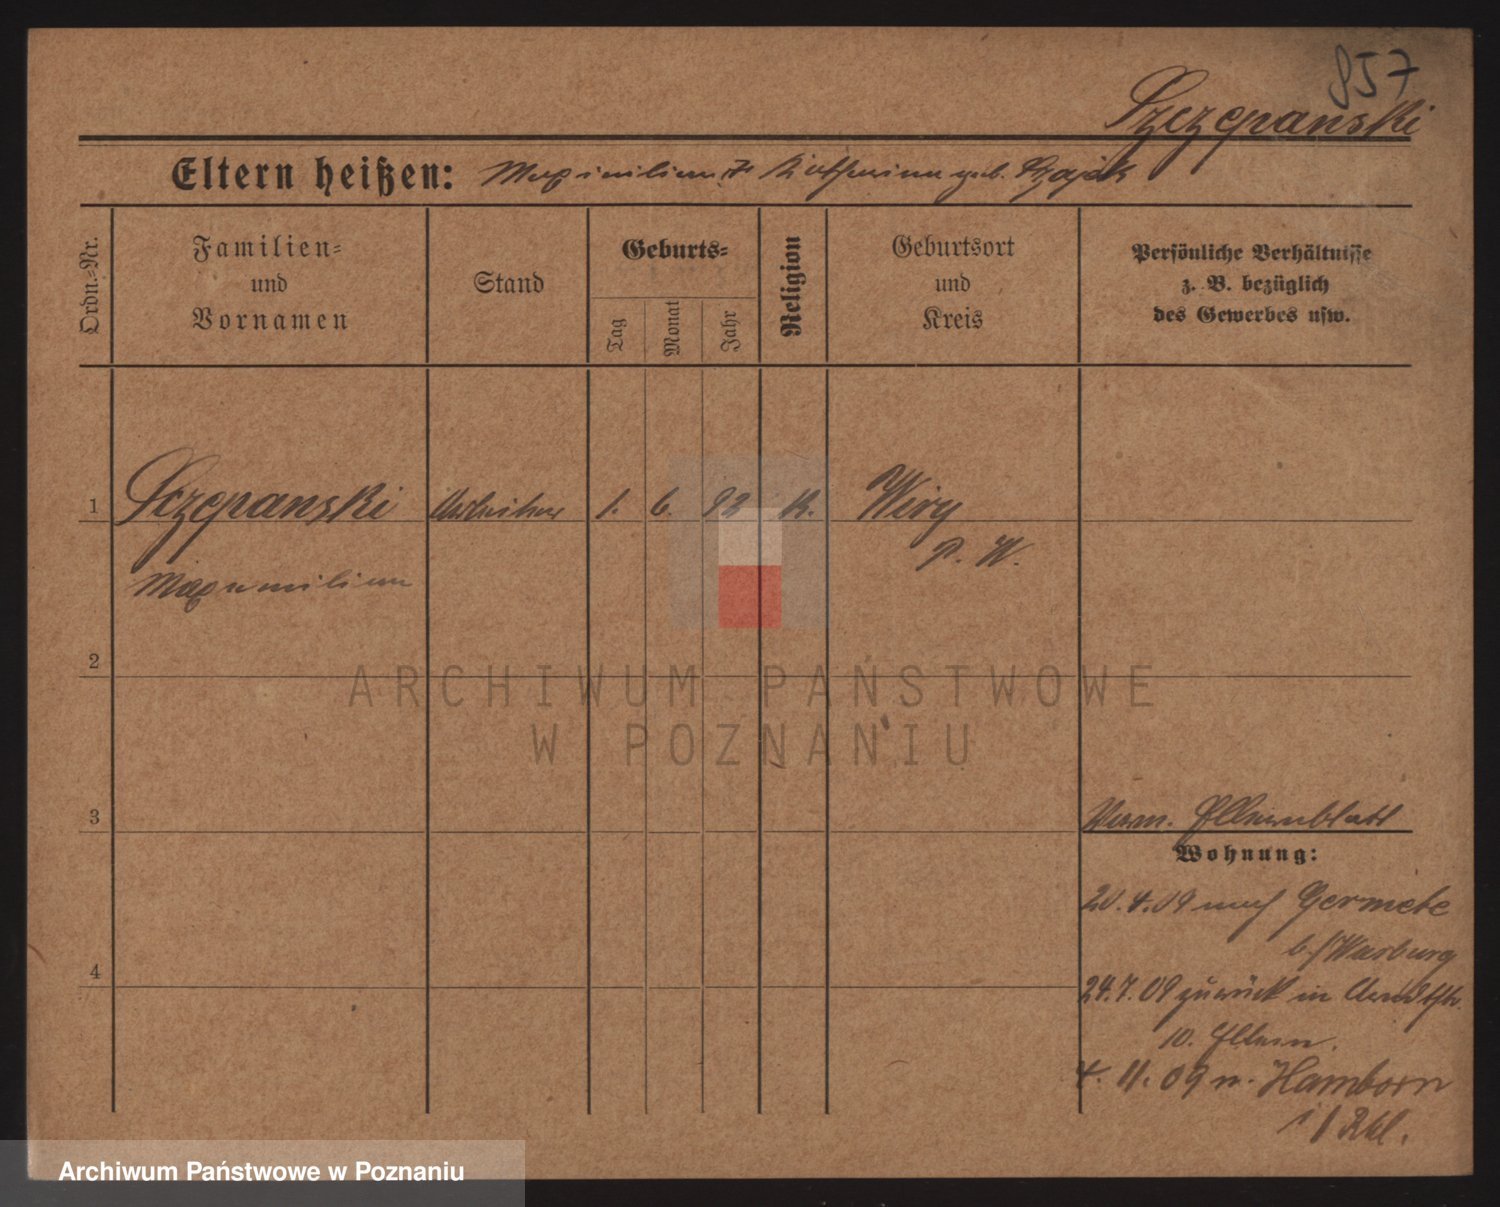 857
Szczepanski
Eltern heißen: Maximilian u. Katharina geb. Szajek
Ordn.-Nr.
Familien-
und
Vornamen
Stand
Geburts-
Tag
Monat
Jahr
Religion
Geburtsort
und
Kreis
Persönliche Verhältnisse
z. B. bezüglich
des Gewerbes usw.
1 Szczepanski Arbeiter 1. 6. 92 K. Wiry
P. W.
Maximilian
2
ARCHIWUM PAŃSTWOWE
W POZNANIU
3
Verm. Elternblatt
Wohnung:
20.4.09 nach Germete
b/Warburg
4
24.7.09 zurück in Arndtstr.
10. Eltern.
4. 11. 09 n. Hamborn
i/Rhl.
Archiwum Państwowe w Poznaniu